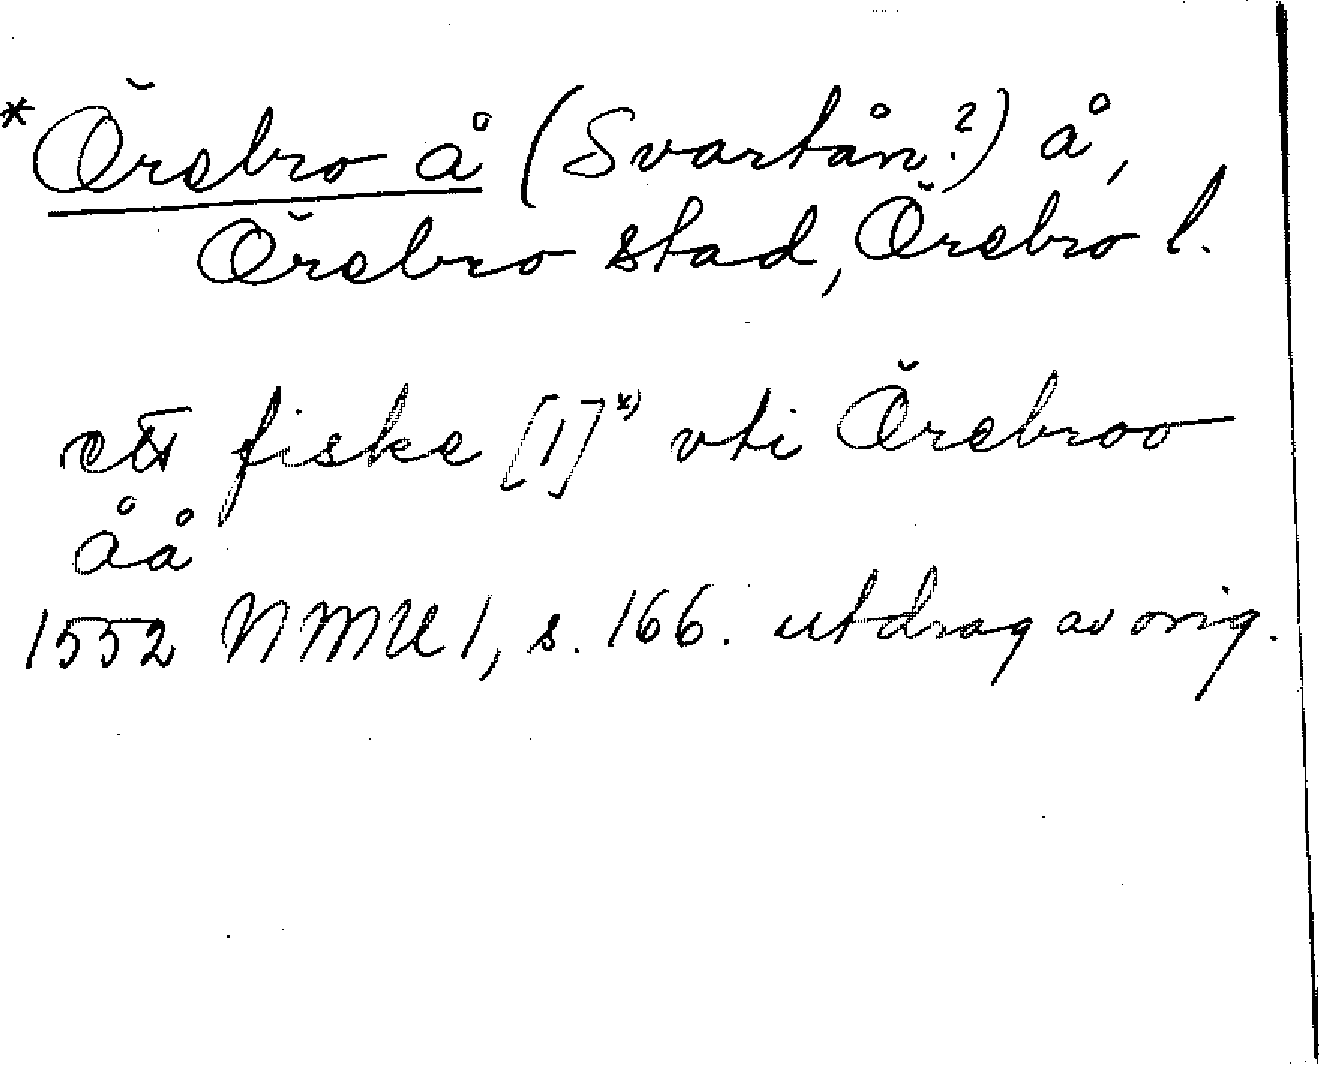 *Örebro å (Svartån?) å,
Örebro stad, Örebro l.
ett fiske [1]*) vti Örebroo
åå
1552 NMU 1, s. 166. utdrag av orig.